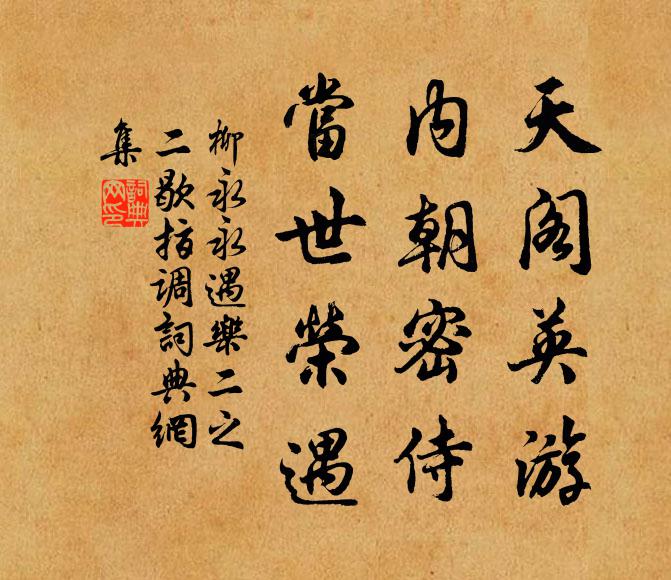 天阁英游
内朝密侍
當世榮遇
柳永永遇樂二之
二歇指调詞典網
集
詞典网印